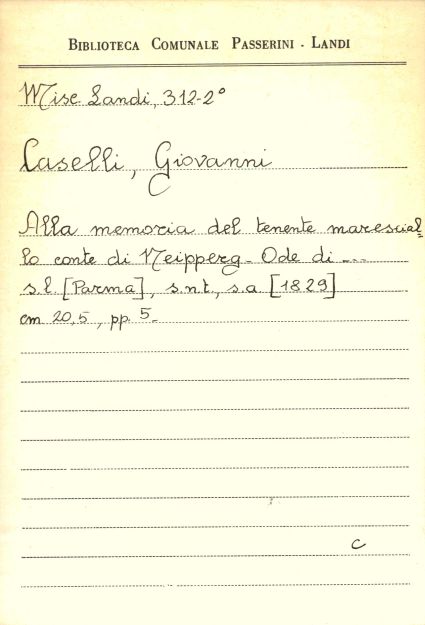 BIBLIOTECA COMUNALE PASSERINI - LANDI
Misc Landi, 312-2°
Caselli, Giovanni
Alla memoria del tenente marescial=
lo conte di Neipperg - Ode di ----
s.l [Parma], s.n.t., s.a [1829]
cm 20,5, pp. 5-
c